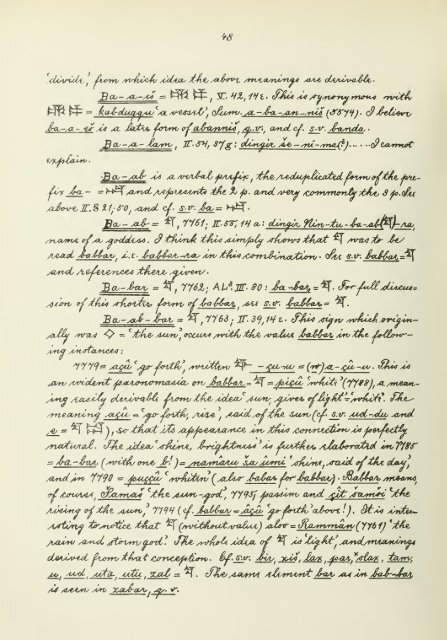 48
'divide', from which idea the above meanings are derivable.
Ba-a-eš = 𒀀, V. 42, 14 c. This is synonymous with
= kabduqqu 'a vessel', Sum. a-ba-an-niš (5574). I believe
ba-a-eš is a later form of abanniš, q.v., and cf. s.v. banda.
Ba-a-lam, II. 54, 37 g: dingir še-ni-ma(?)....I cannot
explain.
Ba-ab is a verbal prefix, the reduplicated form of the pre-
fix ba- = and represents the 2 p. and very commonly the 3 p. See
above II. § 21; 50, and cf. s.v. ba =
Ba-ab = , 7761; II. 55, 14 a: dingir Nin-tu-ba-ab()-ra,
name of a goddess. I think this simply shows that was to be
read babbar, i.e. babbar-ra in this combination. See s.v. babbar =
and references there given.
Ba-bar = , 7762; AL³. III. 80: ba-bar = . For full discus-
sion of this shorter form of babbar, see s.v. babbar =
Ba-ab-bar = , 7763; II. 39, 14 c. This sign which origin-
ally was ◇ = 'the sun', occurs with the value babbar in the follow-
ing instances:
7779 = açû 'go forth', written -çu-u = (w)a-çû-u. This is
an evident paronomasia on babbar = = piçû 'white' (7788), a mean-
ing easily derived from the idea 'sun, giver of light' = 'white'. The
meaning açû = 'go forth, rise', said of the sun (cf. s.v. ud-du and
e = ), so that its appearance in this connection is perfectly
natural. The idea 'shine, brightness' is further elaborated in 7785
= ba-bar (with one b!) = namâru ša ûmi 'shine, said of the day',
and in 7790 = puççû 'whiten' (also babar for babbar). Babbar means,
of course, Šamaš 'the sun-god', 7795, passim and çît šamši 'the
rising of the sun,' 7794 (cf. babbar = âçû 'go forth' above!). It is inter-
esting to notice that (without value) also = Rammân (7761) 'the
rain and storm god'. The whole idea of is 'light', and meanings
derived from that conception. Cf. s.v. bir, xiš, lax, par, slax, tam,
u, ud, uta, utu, zal = . The same element bar as in bab-bar
is seen in zabar, q.v.